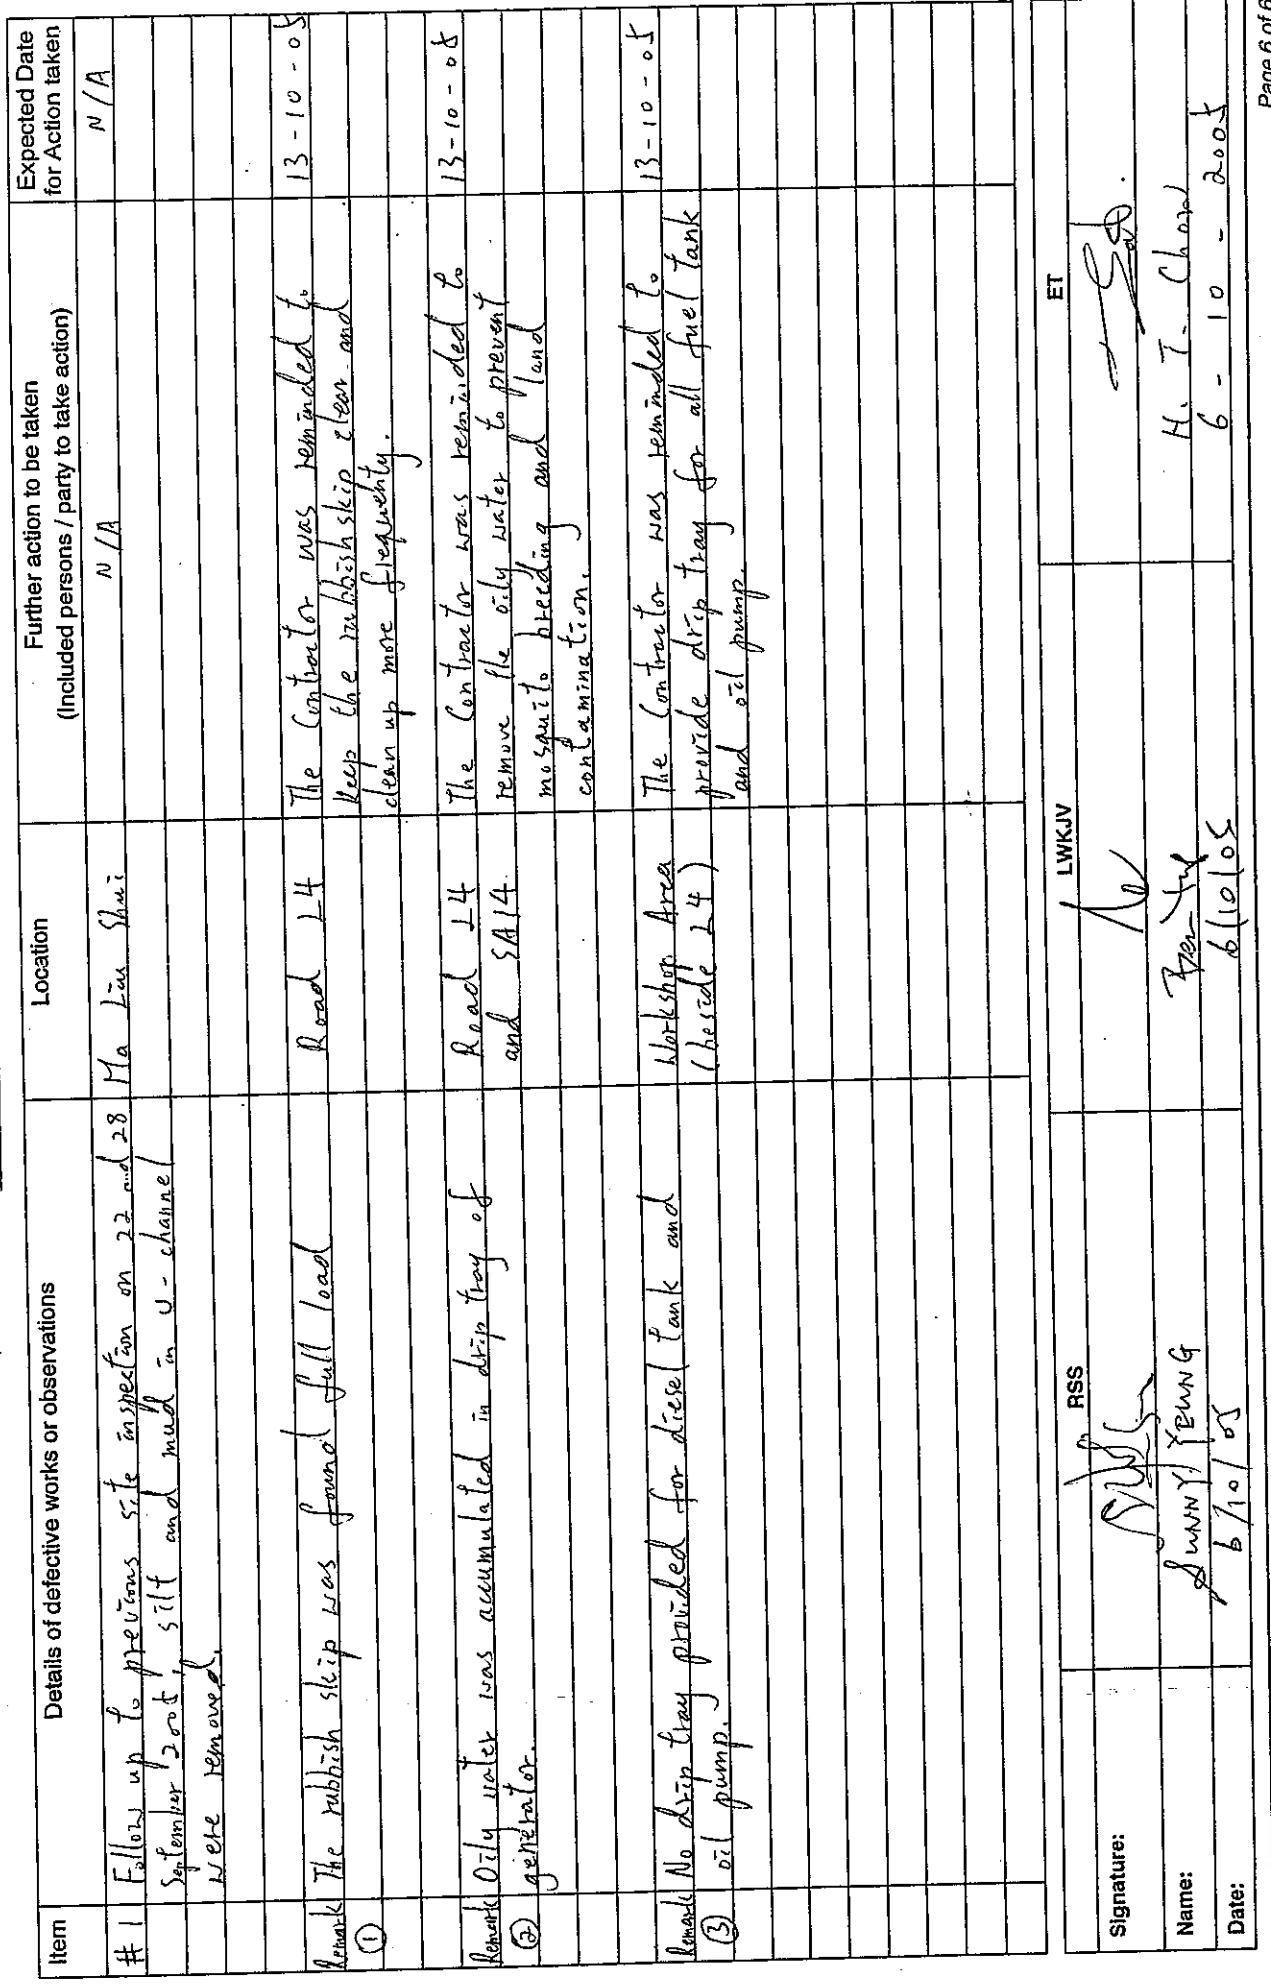 Item
Details of defective works or observations
Location
Further action to be taken
(Included persons / party to take action)
Expected Date
for Action taken
# 1
Follow up to previous site inspection on 22 and 28
September 2005, silt and mud in U-channel
were removed.
Ma Liu Shui
N/A
N/A
Remark
①
The rubbish skip was found full load
Road L4
The Contractor was reminded to
keep the rubbish skip clear and
clean up more frequently.
13-10-05
Remark
②
Oily water was accumulated in drip tray of
generator.
Road L4
and SA14
The Contractor was reminded to
remove the oily water to prevent
mosquito breeding and land
contamination.
13-10-05
Remark
③
No drip tray provided for diesel tank and
oil pump.
Workshop Area
(beside L4)
The Contractor was reminded to
provide drip tray for all fuel tank
and oil pump.
13-10-05
RSS
LWKJV
ET
Signature:
Name:
SUNNY YEUNG
H. T. Chow
Date:
6/10/05
6/10/05
6 - 10 - 2005
Page 6 of 6